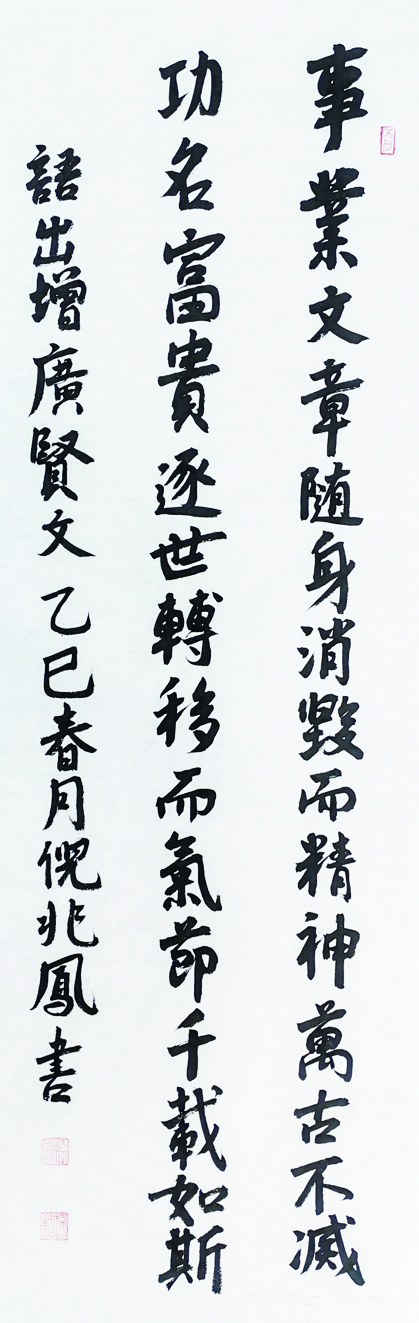 事業文章随身消毀而精神萬古不滅
功名富貴逐世轉移而氣節千載如斯
語出增廣賢文乙巳春月倪兆鳳書